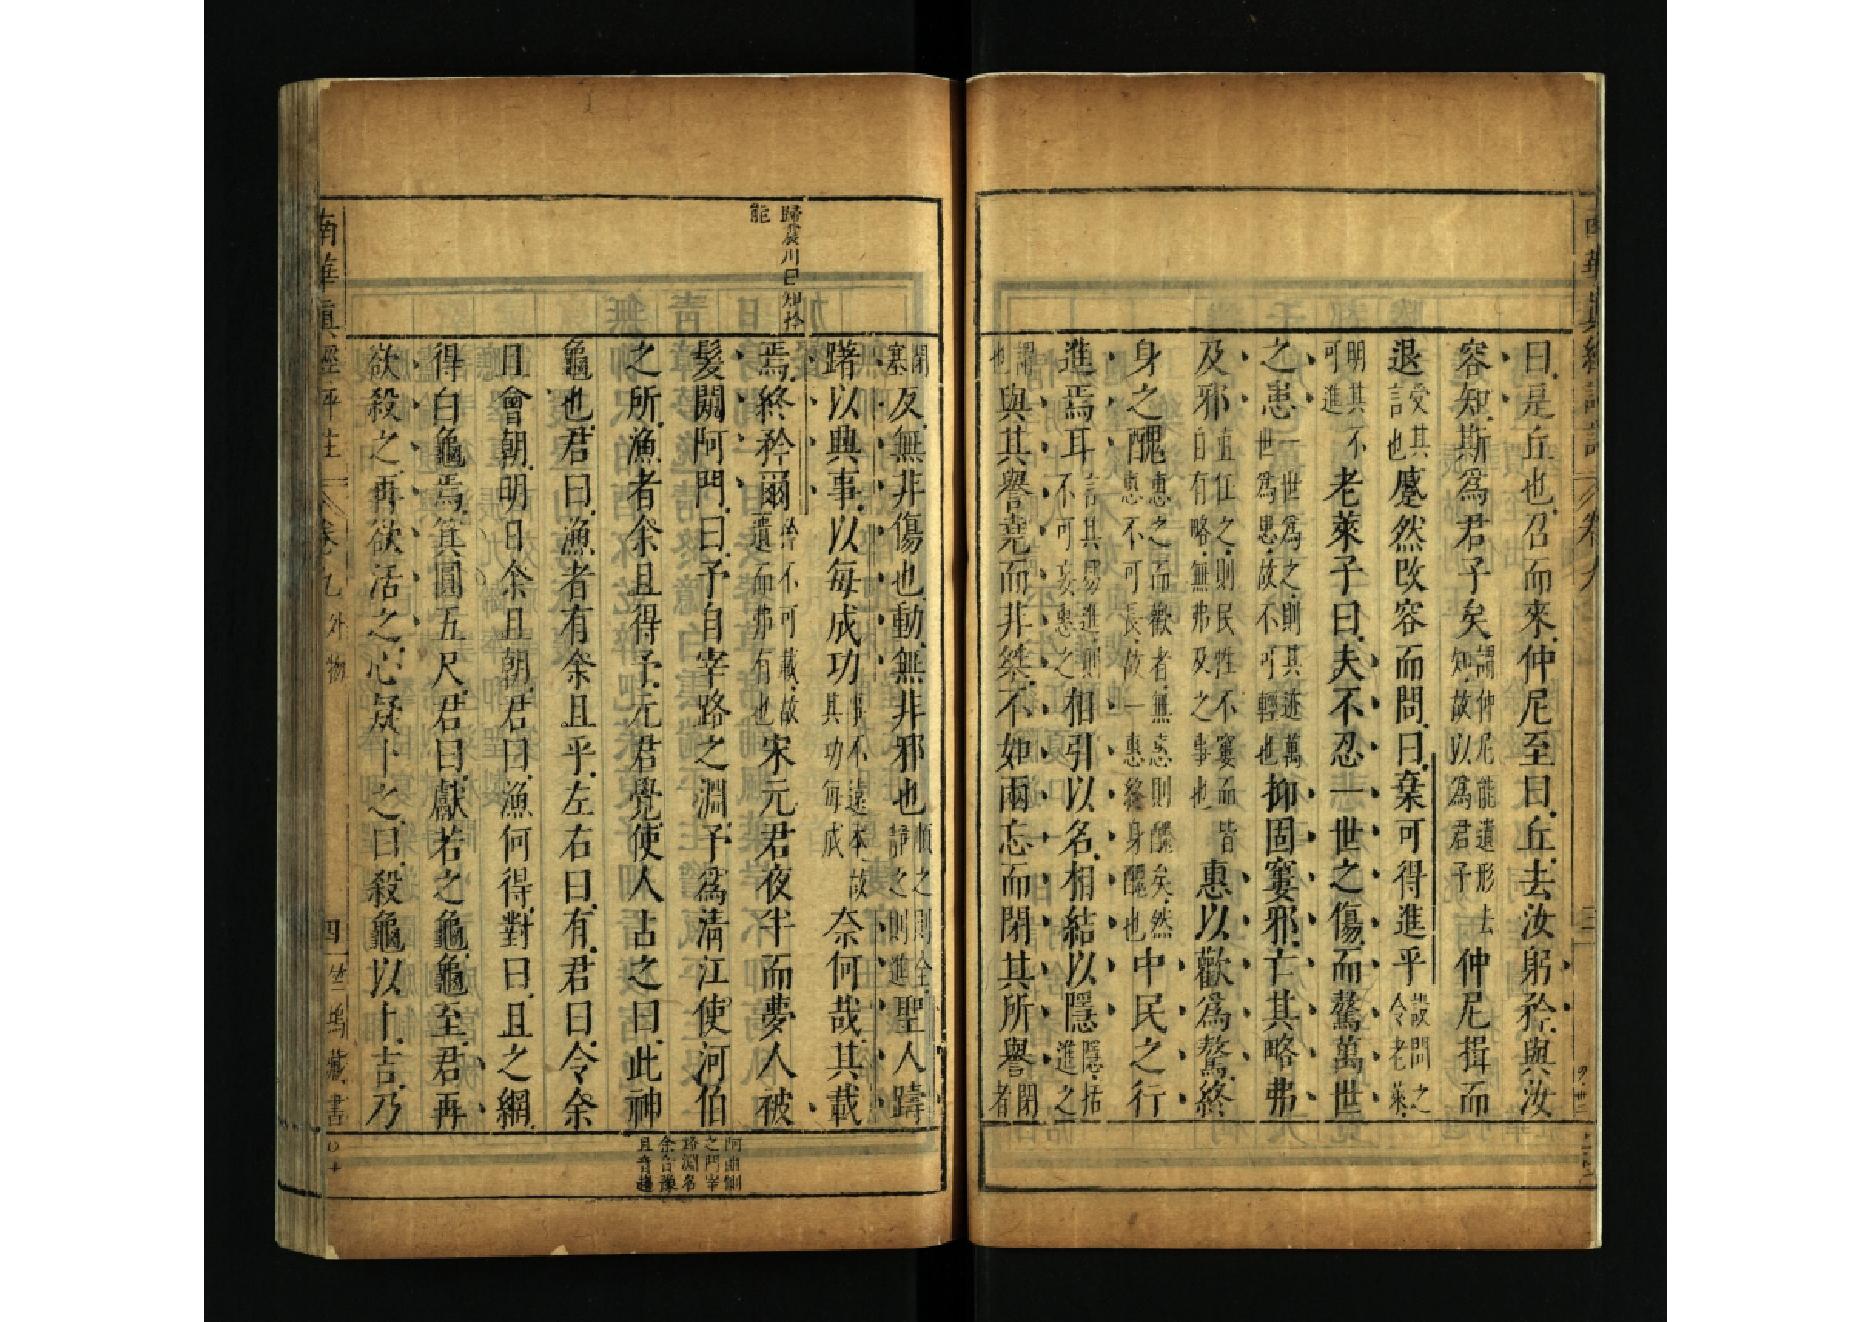 曰是丘也召而來仲尼至曰丘去汝躬矜與汝
容知斯爲君子矣謂仲尼能遺形去知故以爲君子仲尼揖而
退受其言也蹙然改容而問曰業可得進乎設問之令老萊
明其不可進老萊子曰夫不忍一世之傷而驁萬世
之患一世爲之則其迹萬世爲患故不可輕也抑固窶邪亡其略弗
及邪直任之則民性不窶而皆自有略無弗及之事也惠以歡爲驁終
身之醜惠之而歡者無惠則醜矣然惠不可長故一惠終身醜也中民之行
進焉耳言其易進則不可妄惠之相引以名相結以隱隱括進之
謂也與其譽堯而非桀不如兩忘而閉其所譽閉者
閉塞反無非傷也動無非邪也順之則全靜之則進聖人躊
躇以興事以每成功事不遠本故其功每成奈何哉其載
焉終矜爾矜不可載故遺而弗有也宋元君夜半而夢人被
髮闚阿門曰予自宰路之淵予爲淸江使河伯
之所漁者余且得予元君覺使人占之曰此神
龜也君曰漁者有余且乎左右曰有君曰令余
且會朝明日余且朝君曰漁何得對曰且之網
得白龜焉箕圓五尺君曰獻若之龜龜至君再
欲殺之再欲活之心疑卜之曰殺龜以卜吉乃
歸震川曰知矜
能
阿曲側
之門宰
路淵名
余音豫
且音趄
南華眞經評註
卷九外物
四
竺塢藏書
南華眞經評註
卷九
三